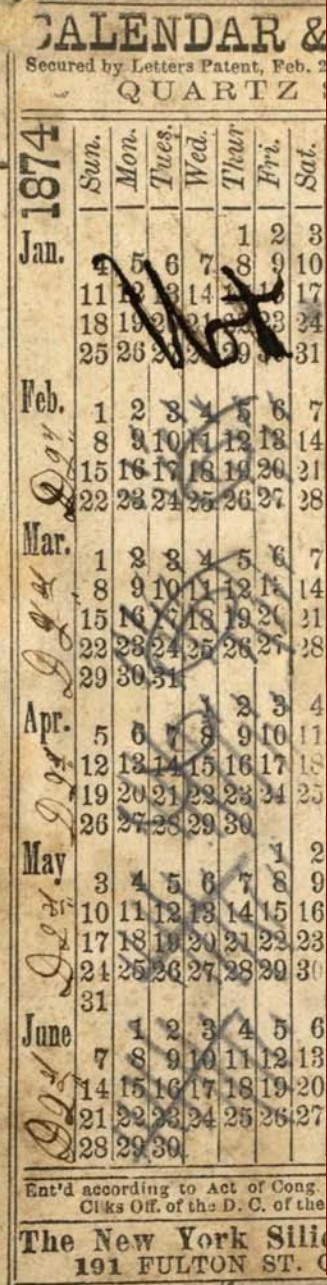 CALENDAR &
Secured by Letters Patent, Feb. 2
QUARTZ S
1874 Sun. Mon. Tues. Wed. Thur Fri. Sat.
Jan.
1 2 3
4 5 6 7 8 9 10
11 12 13 14 16 17
18 19 20 21 23 24
25 26 29 31
Feb.
1 2 3 4 5 6 7
8 9 10 11 12 13 14
15 16 17 18 19 20 21
22 23 24 25 26 27 28
Mar.
1 2 3 4 5 6 7
8 9 10 11 12 14
15 16 17 18 19 20 21
22 23 24 25 26 27 28
29 30 31
Apr.
1 2 3 4
5 6 7 8 9 10 11
12 13 14 15 16 17 18
19 20 21 22 23 24 25
26 27 28 29 30
May
1 2
3 4 5 6 7 8 9
10 11 12 13 14 15 16
17 18 19 20 21 22 23
24 25 26 27 28 29 30
31
June
1 2 3 4 5 6
7 8 9 10 11 12 13
14 15 16 17 18 19 20
21 22 23 24 25 26 27
28 29 30
Ent'd according to Act of Cong.
Clks Off. of the D. C. of the
The New York Silic
191 FULTON ST.